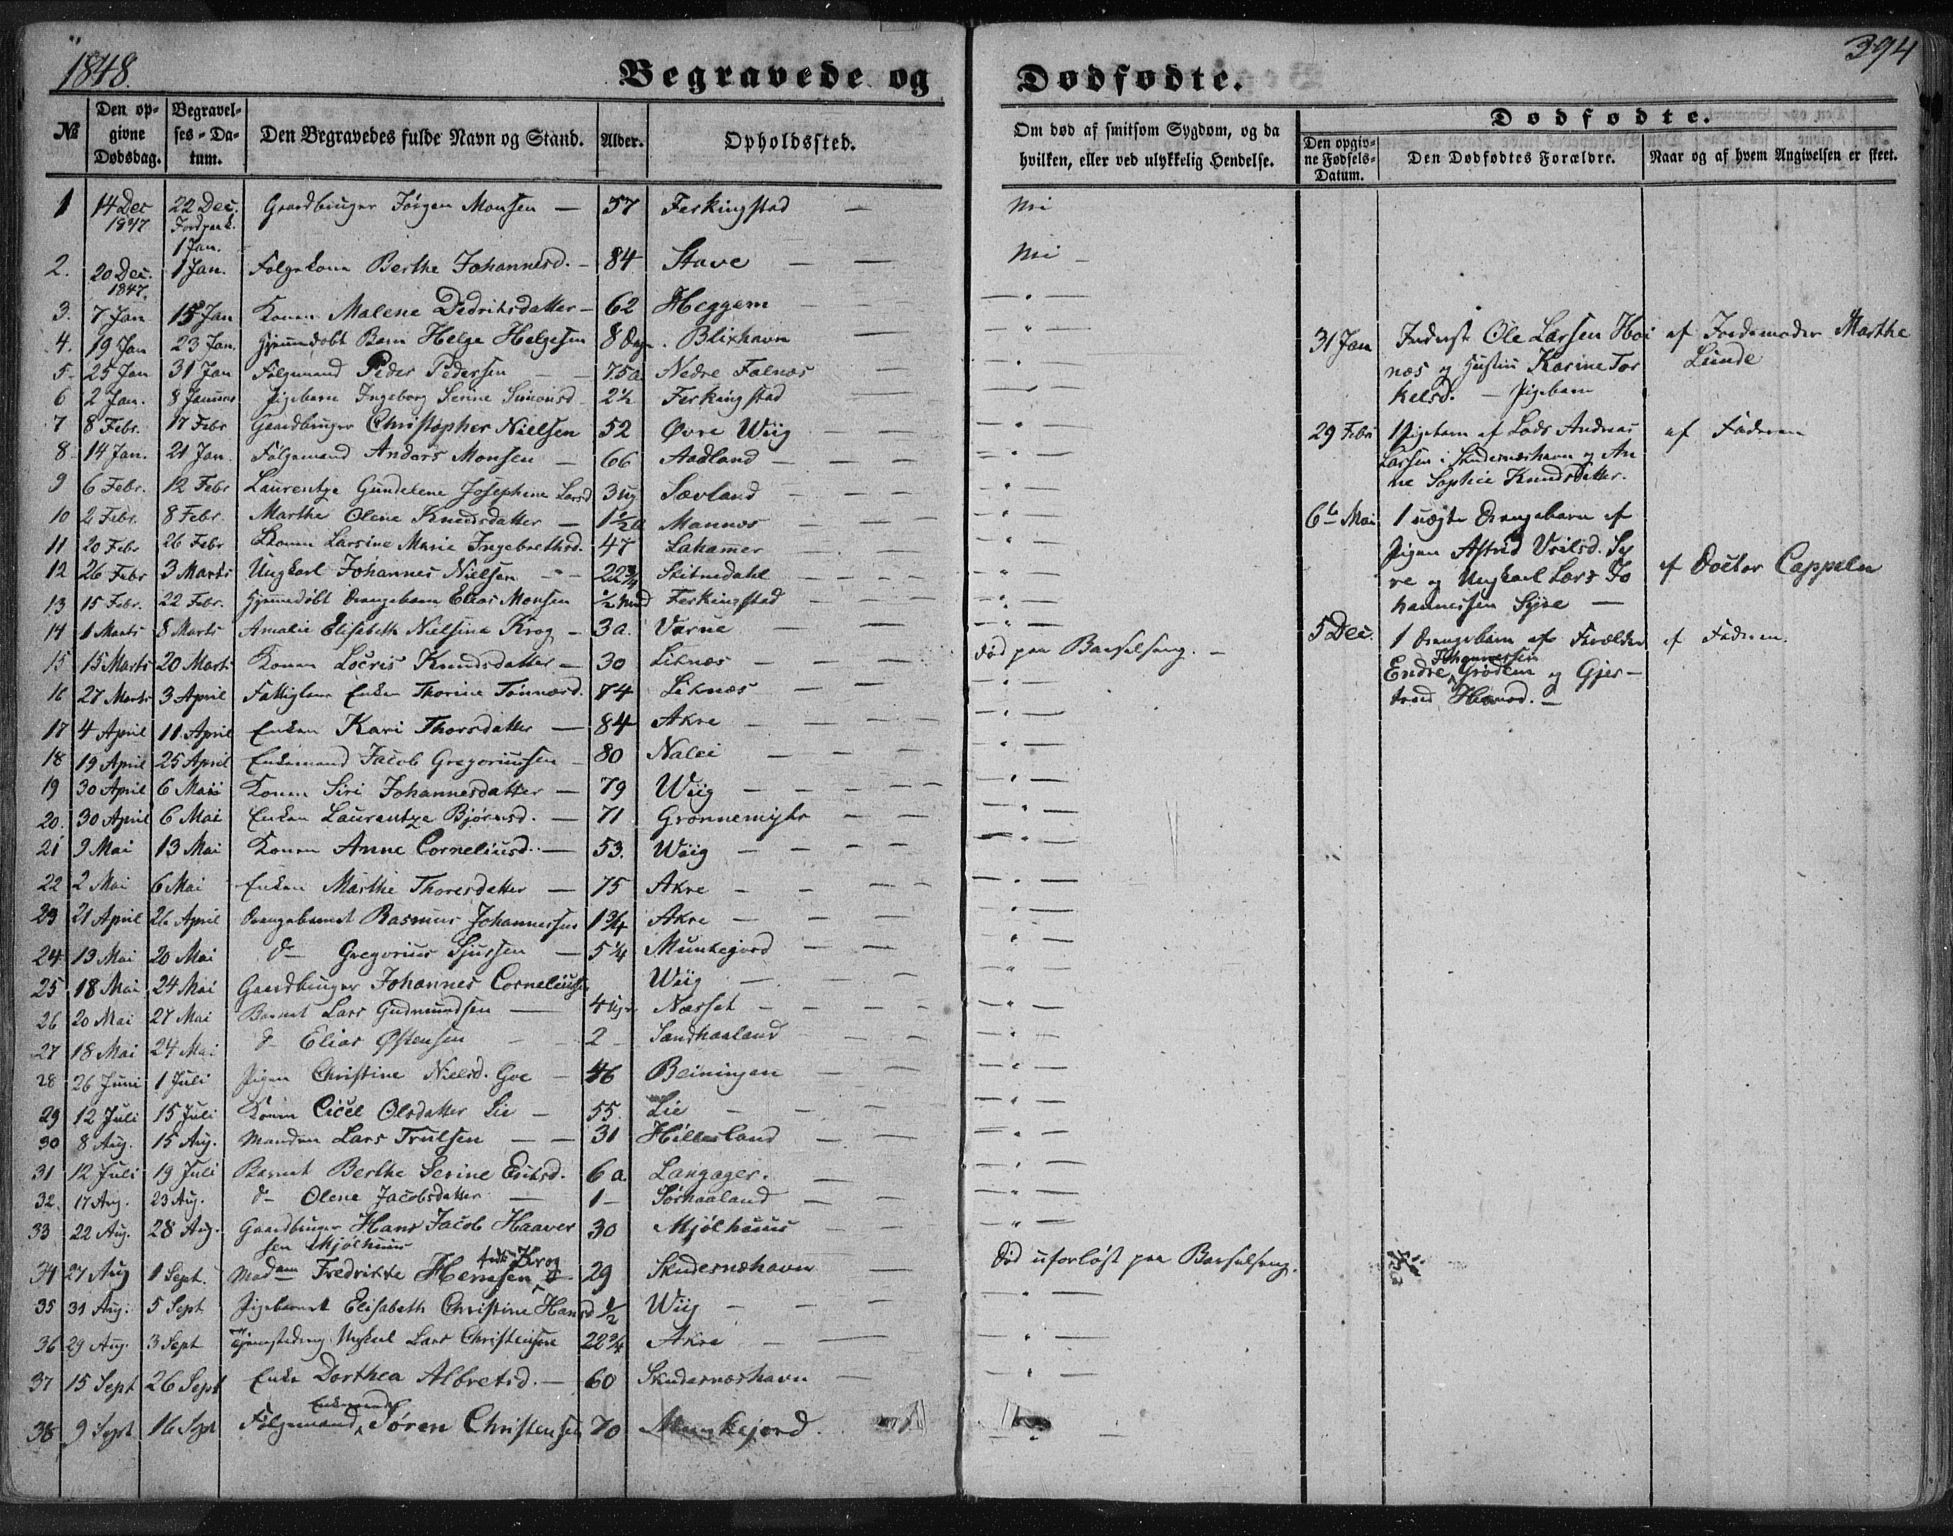 1848.
394
Begravede og Dødfødte.
№ Den opgivne Dødsdag. Begravelses-Datum. Den Begravedes fulde Navn og Stand. Alder. Opholdssted. Om død af smitsom Sygdom, og da hvilken, eller ved ulykkelig Hendelse.
Dødfødte.
Den opgivne Fødsels-Datum. Den Dødfødtes Forældre. Naar og af hvem Angivelsen er skeet.
1 14 Dec 1847 22 Dec. Jordpaak. 1 Jan. Gaardbruger Jørgen Monsen — 57 Ferkingstad — Nei
2. 20 Dec. 1847. 1 Jan. Følgekone Berthe Johannesd. — 84 Stave — — Nei —
3. 7 Jan 15 Jan Konen Malene Dedriksdatter — 62 Heggem — — " —
4. 19 Jan 23 Jan. Hjemmedøbt Barn Helge Helgesen 8 Dage. Blixhavn — " —
5. 25 Jan 31 Jan Følgemand Peder Pedersen — — 75 a. Nedre Falnæs — " —
6 2 Jan. 8 Januar Pigebarn Ingeborg Serine Simonsd 2½ Ferkingstad — " —
7 8 Febr. 17 Febr Gaardbruger Christopher Nielsen 52 Øvre Wiig — — " —
8. 14 Jan. 21 Jan. Følgemand Anders Monsen — 66 Aadland — — " —
9 6 Febr. 12 Febr Laurentze Gundelene Josephine Larsd 3 ug Sævland — — " —
10 2 Febr. 8 Febr. Marthe Olene Knudsdatter — 1½ a Mannæs — — " —
11 20 Febr 26 Febr Konen Larsine Marie Ingebrethsd. 47 Lahammer — — " —
12 26 Febr 3 Marts Ungkarl Johannes Nielsen — 22¾ Skitnedahl — — " —
13 15 Febr. 22 Febr. Hjemmedøbt Drengebarn Elias Monsen ½ Mnd Ferkingstad — — " —
14 1 Marts 8 Marts Amalie Elisabeth Nielsine Krog — 3 a. Varne — — " —
15 15 Marts 20 Marts Konen Locris Knudsdatter — 30 Liknæs — — død paa Barselseng. —
16 27 Marts 3 April Fattiglem Enken Thorine Tønnesd. 74 Liknæs — — " —
17 4 April 11 April Enken Kari Thorsdatter — 84 Akre — — " —
18 19 April 25 April Enkemand Jacob Gregoriussen — 80 Nalei — — " —
19 30 April 6 Mai Konen Siri Johannesdatter — 79 Wiig — — " —
20. 30 April 6 Mai Enken Laurentze Bjørnsd. — 71 Grønnemyhr — — " —
21 9 Mai 13 Mai Konen Anne Corneliusd. — 53. Wiig — — " —
22 2 Mai 6 Mai Enken Marthe Thoresdatter — 75 Akre — — " —
23 21 April 26 April Drengebarnet Rasmus Johannessen 1¾ Akre — — " —
24 13 Mai 20 Mai do Gregorius Sjursen — 5¼ Munkejord — — " —
25 18 Mai 24 Mai Gaardbruger Johannes Corneliussen Wiig — — " —
26 20 Mai 27 Mai Barnet Lars Gudmundsen — 4 Uger Næsset — — " —
27 18 Mai 24 Mai do Elias Østensen — 2 — Sandhaaland — — " —
28 26 Juni 1 Juli Pigen Christine Nielsd. Goe — 46 Beiningen — — " —
29 12 Juli 15 Juli Konen Cicel Olsdatter Lie — 55. Lie — — " —
30 8 Aug. 15 Aug. Manden Lars Trulsen — — 31 Hillesland — — " —
31 12 Juli 19 Juli Barnet Berthe Serine Eriksd. 6 a. Langager. — " —
32. 17 Aug. 23 Aug. do Olene Jacobsdatter — 1 — Sørhaaland — — " —
33 22 Aug. 28 Aug. Gaardbruger Hans Jacob Haaversen Mjølhuus 30 Mjølhuus — — " —
34 27 Aug 1 Sept. Madam Fredrikke Hemsen født Krog — 29 Skudesnæshavn — Død uforløst paa Barselseng.
35 31 Aug. 5 Sept Pigebarnet Elisabeth Christine Hansd ½ Wiig — — " —
36 29 Aug. 3 Sept Ungkarl Lars Christensen 22¾ Akre — — " —
37 15 Sept 26 Sept Enke Dorthea Albretsd. — 60 Skudesnæshavn — — " —
38 9 Sept 16 Sept Følgemand, Enkemand Søren Christensen 70 Munkejord. — " —
31 Jan Inderst Ole Larsen Høi
næs og Hustru Karine Tor
kelsd. — Pigebarn
af Jordemoder Marthe
Lunde
29 Febr 1 Pigebarn af Lods Andreas
Larsen i Skudesnæshavn og An
ne Sophie Knudsdatter.
af Faderen
6te Mai 1 uægte Drengebarn af
Pigen Astrid
og Ungkarl Lars Jo
hannessen Syre —
af Doctor Cappelen
5 Dec. 1 Drengebarn af Forældre
Endre Johannessen Grødem og Gjer—
trud —
af Faderen.